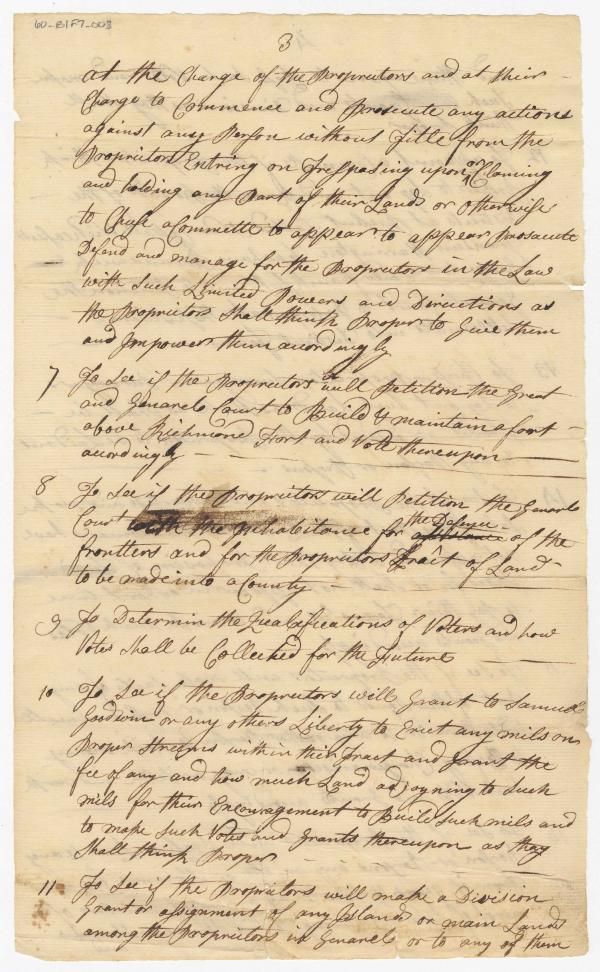 60-B1F7-003
3
at the Charge of the Proprietors and at their
Charge to Commence and Prosecute any actions
against any Person without Title from the
Proprietors Entring on Trespasing upon or Claming
and holding any Part of their Lands or otherwise
to Chuse a Committe to appear to appear Prosacute
Defend and manage for the Proprietors in the Law
with Such Limited Powers and Directions as
the Proprietors Shall think Proper to Give them
and Impower them accordingly
7 To See if the Proprietors will Petition the Great
and Genarel Court to Build & maintain a fort
above Richmond Fort and Vote thereupon
accordingly
8 To See if the Proprietors will Petition the Genarel
Court with the Inhabitance for the Defence assistance of the
frontters and for the Proprietors Tract of Land
to be made into a County
9 To Determin the Qualifications of Voters and how
Votes Shall be Collected for the Future
10 To See if the Proprietors will Grant to Samuel
Goodwin or any others Liberty to Erict any mils on
Proper Streams within their Tract and Grant the
fee of any and how much Land adjoyning to Such
mils for their Encouragement to Build Such mils and
to make Such Votes and Grants thereupon as they
Shall think Proper
11 To See if the Proprietors will make a Division
Grant or assignment of any Islands or main Lands
among the Proprietors in Genarel or to any of them